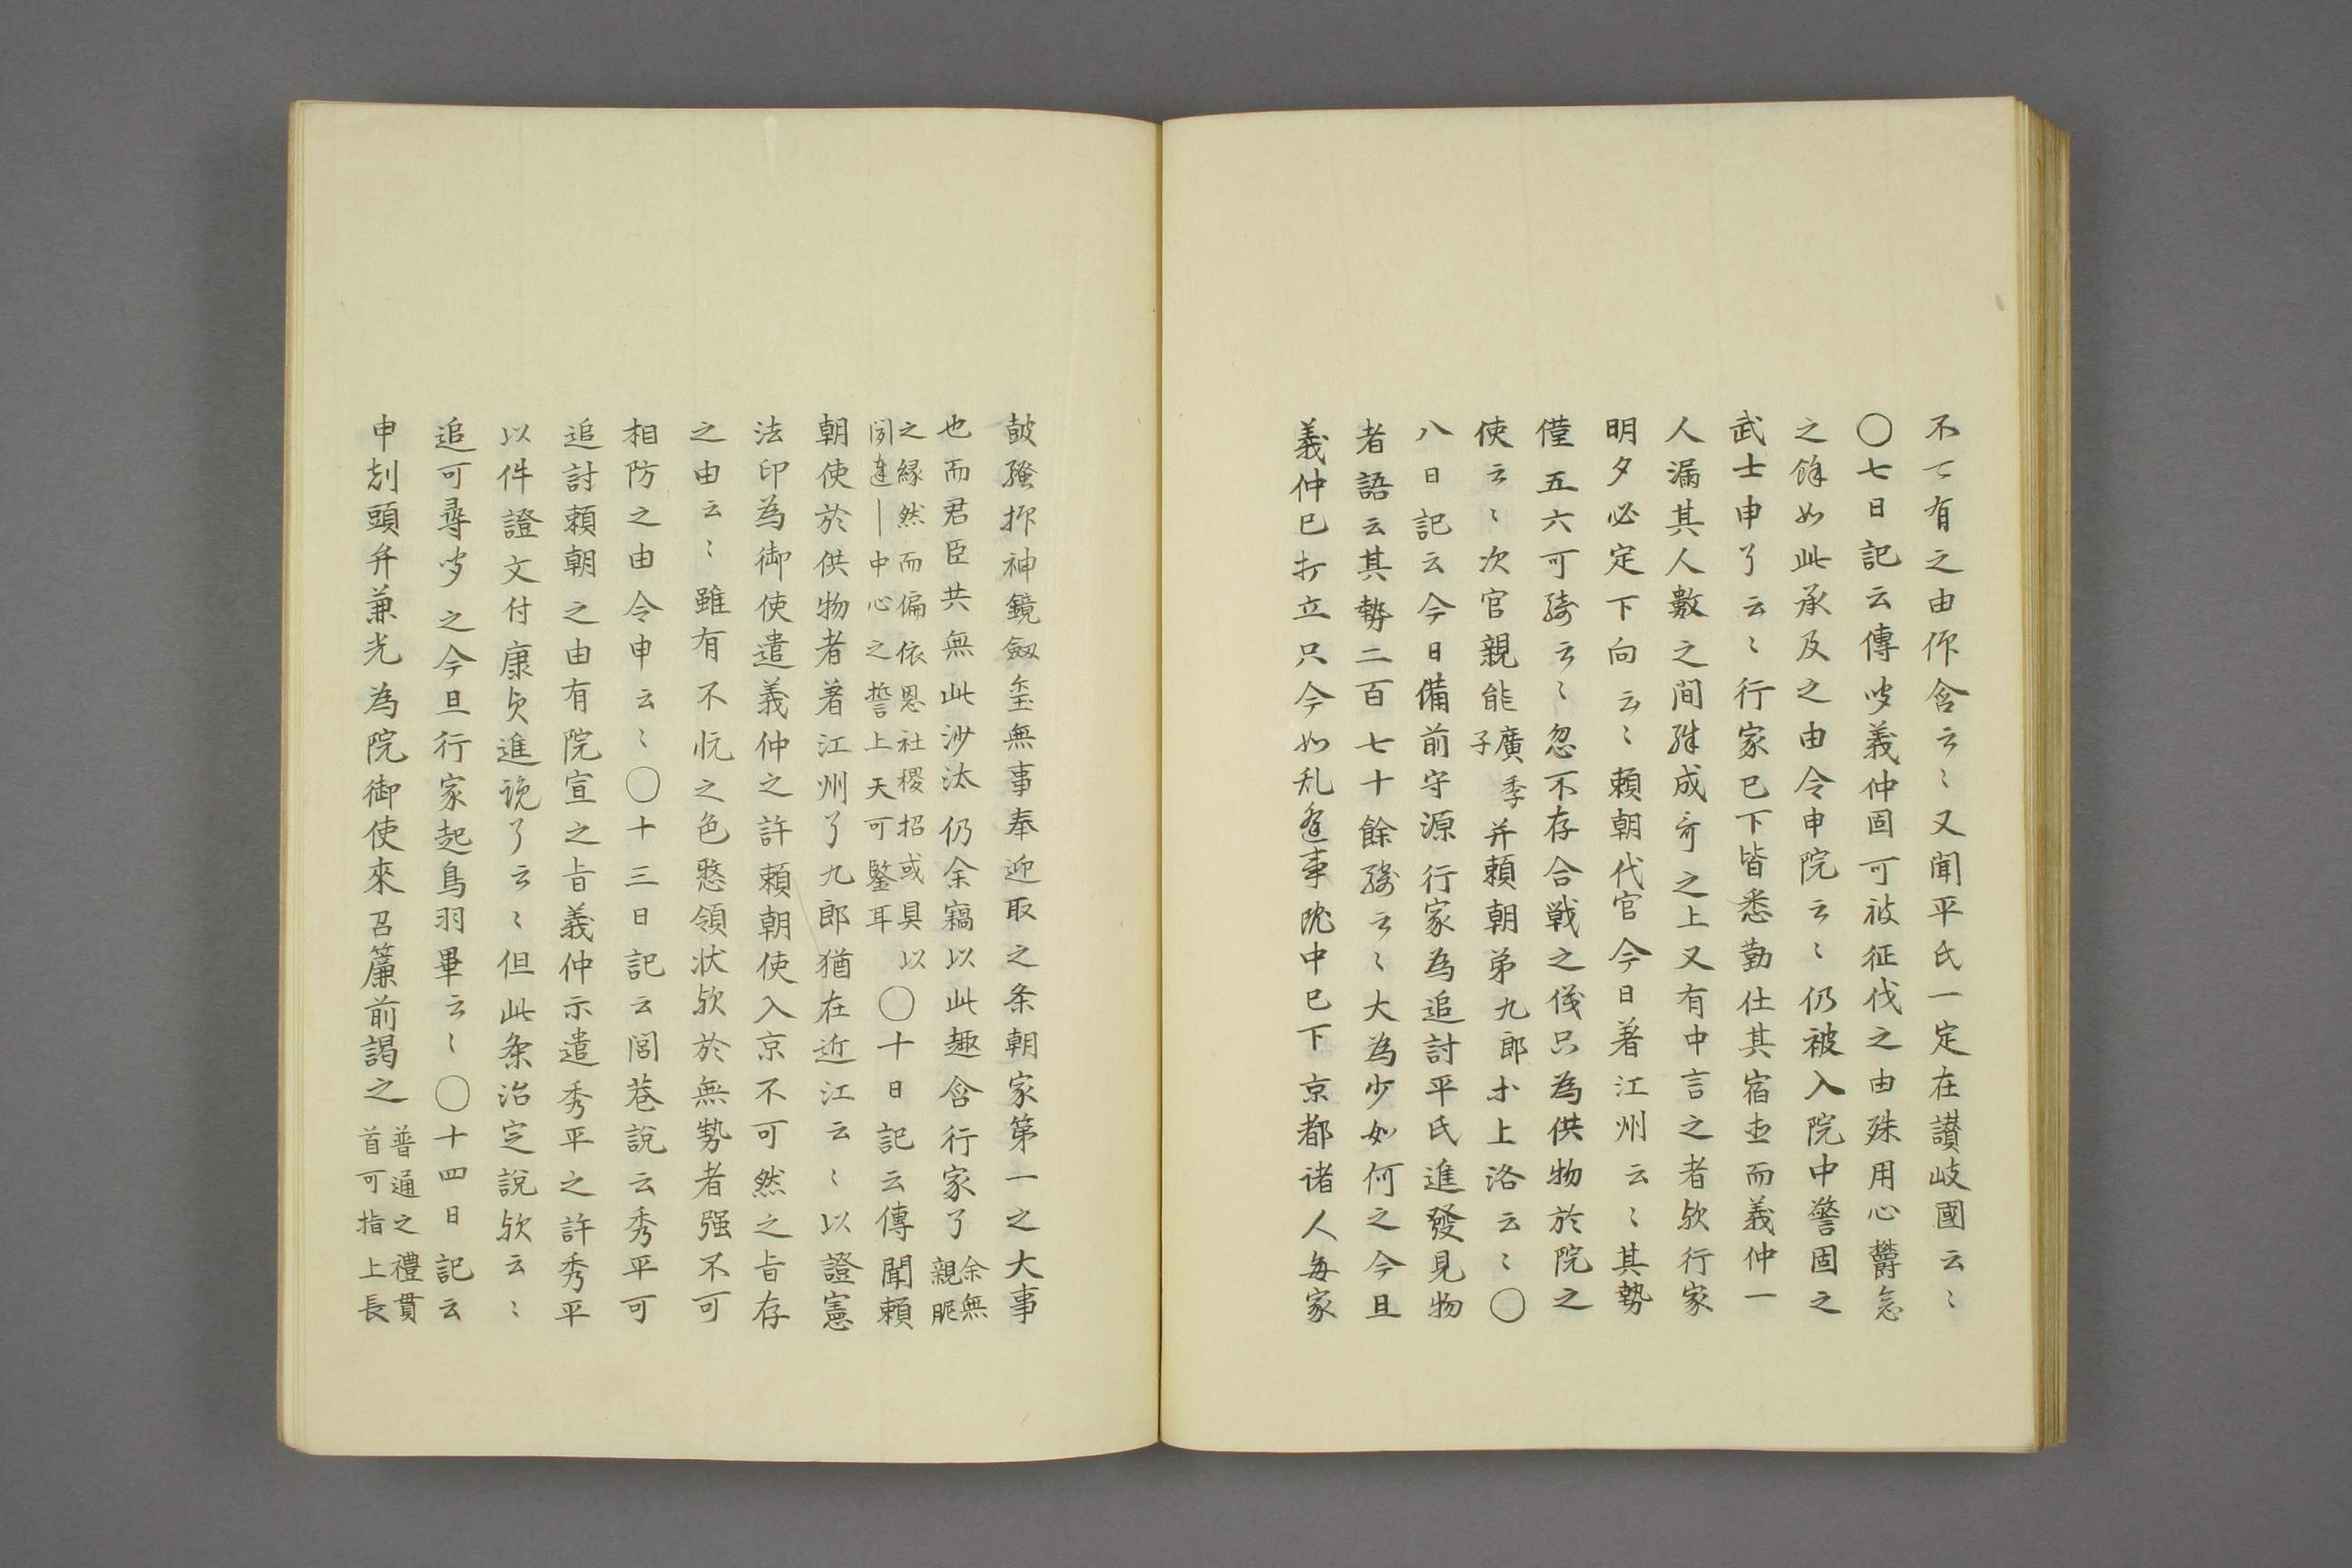 不可有之由仰含云〻又聞平氏一定在讃岐國云〻
〇七日記云傳聞義仲固可被征伐之由殊用心欝忿
之餘如此承及之由令申院云〻仍被入院中警固之
武士申了云〻行家已下皆悉勤仕其宿直而義仲一
人漏其人數之間殊成奇之上又有中言之者欤行家
明夕必定下向云〻頼朝代官今日著江州云〻其勢
僅五六可騎云〻忽不存合戦之儀只為供物於院之
使云〻次官親能廣季子并頼朝弟九郎ホ上洛云〻〇
八日記云今日備前守源行家為追討平氏進發見物
者語云其勢二百七十餘騎云〻大為少如何之今旦
義仲已打立只今如乱逢事院中已下京都诸人毎家
鼓騒抑神鏡劔璽無事奉迎取之条朝家第一之大事
也而君臣共無此沙汰仍余竊以此趣含行家了余無親昵
之縁然而偏依思社稷招或具以
聞達｜中心之誓上天可鑒耳〇十日記云傳聞頼
朝使於供物者著江州了九郎猶在近江云〻以證憲
法印為御使遣義仲之許頼朝使入京不可然之旨存
之由云〻雖有不悦之色愍領状欤於無勢者强不可
相防之由令申云〻〇十三日記云閭巷説云秀平可
追討頼朝之由有院宣之旨義仲示遣秀平之許秀平
以件證文付康貞進覧了云〻但此条治定說欤云〻
追可尋聞之今旦行家起鳥羽畢云〻〇十四日記云
申刻頭弁兼光為院御使來召簾前謁之普通之禮貫首可指上長